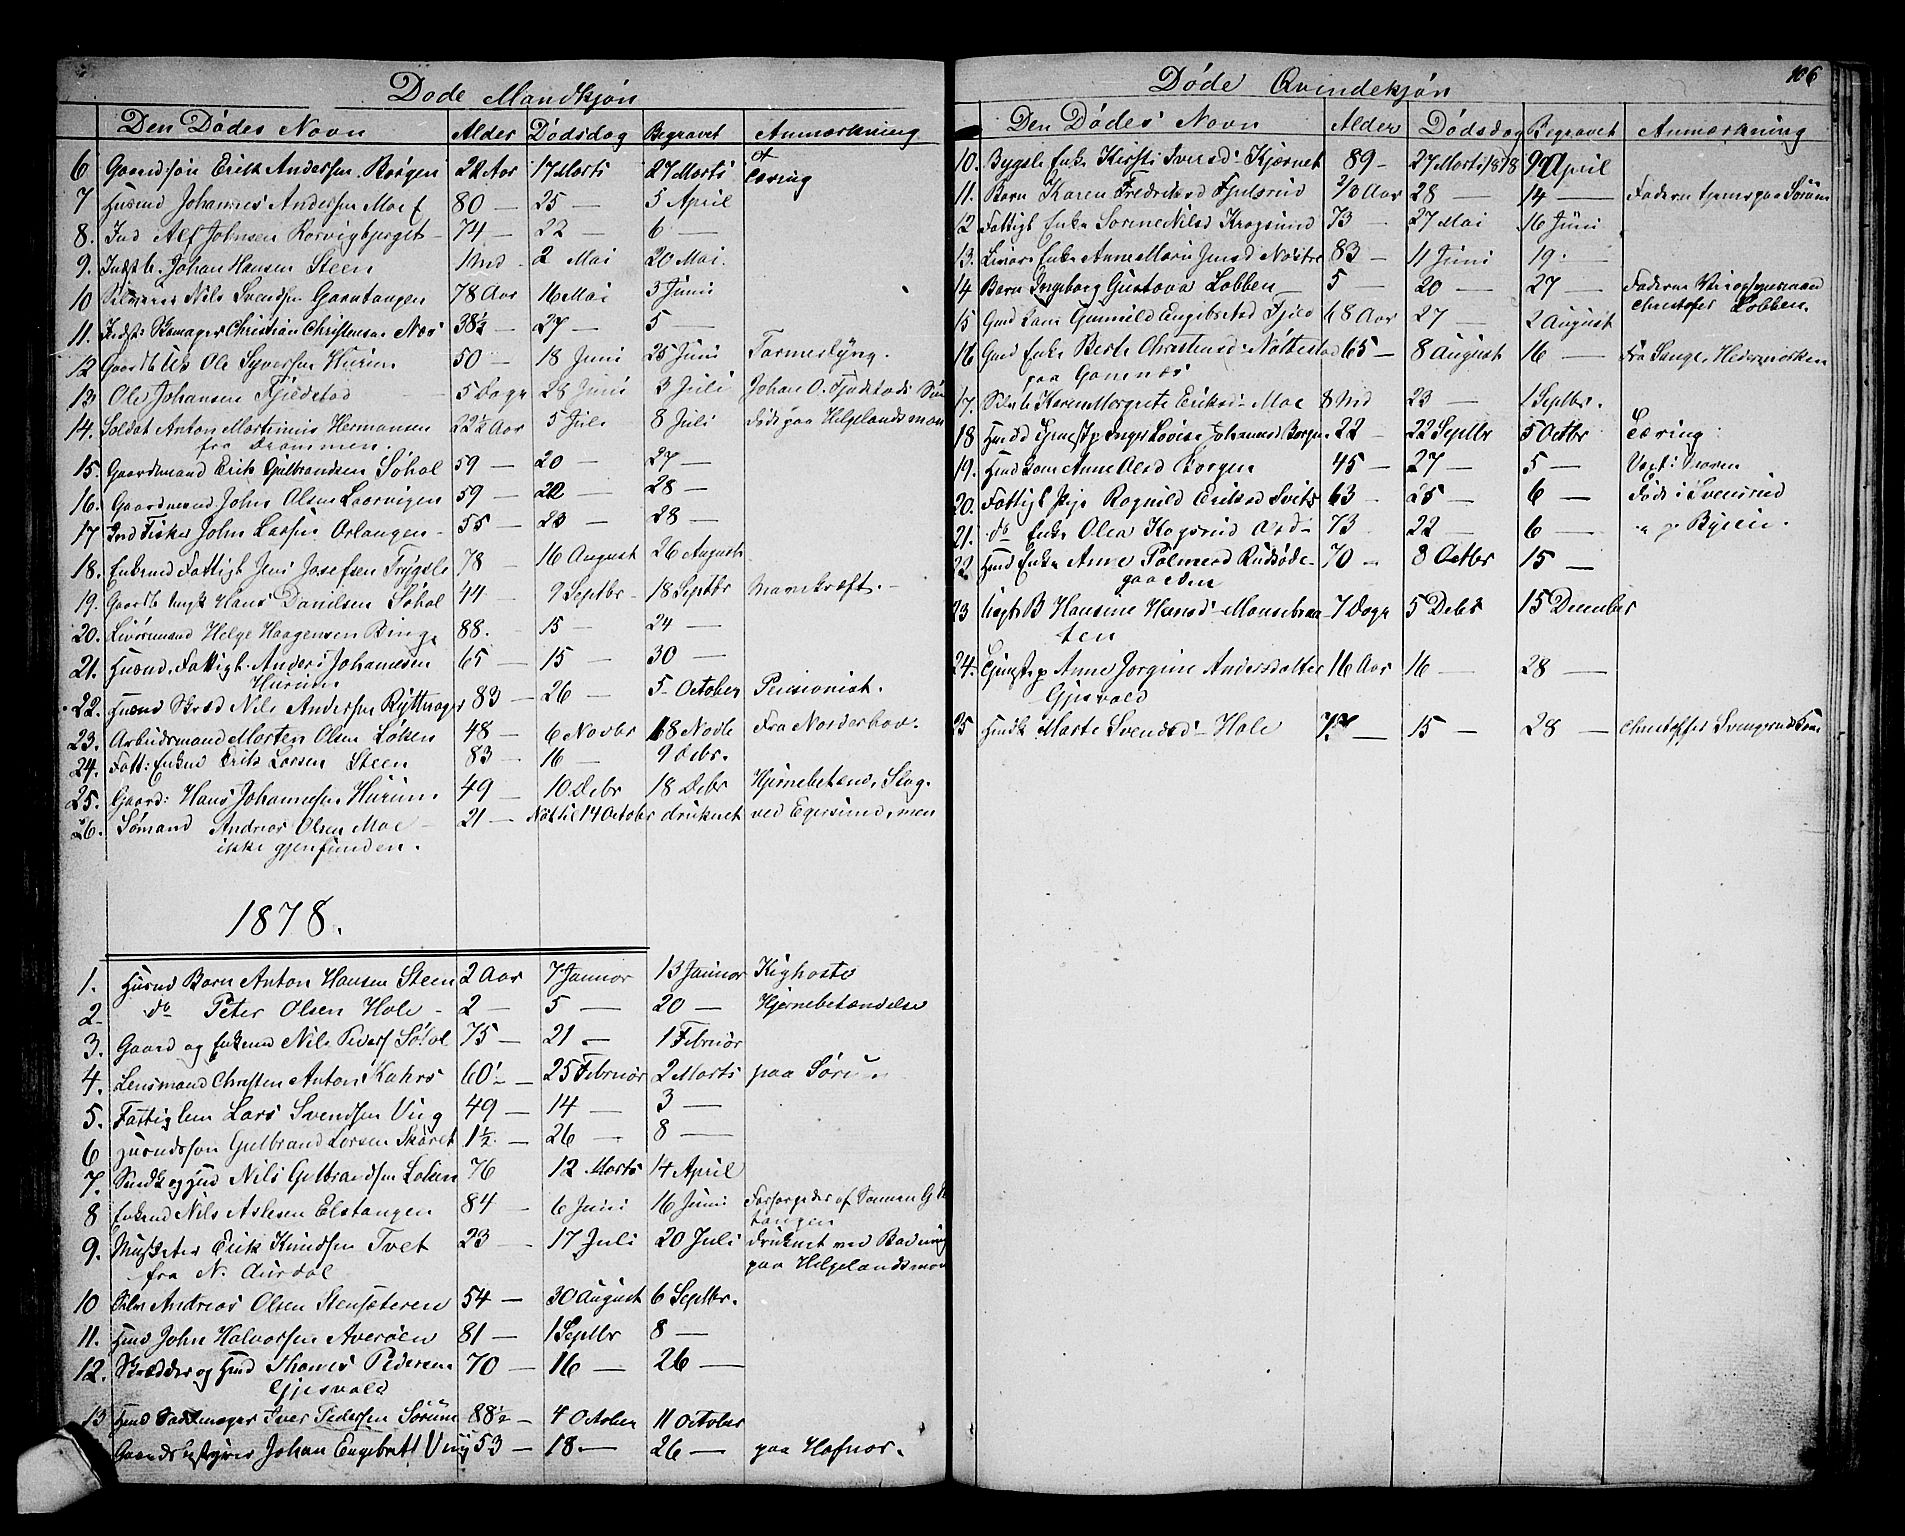 Døde Mandkjøn
Den Dødes Navn Alder Dødsdag Begravet Anmærkning
6 Gaardsøn Erik Andersen Borgen 22 Aar 17 Marts 27 Marts af Tæring
7 Husmd Johannes Andersen Moe 80 — 25 — 5 April
8. Ind Alf Johnsen Korvigbjerget 74 — 22 — 6 —
9. Indstb. Johan Hansen Steen 1 Md 2 Mai 20 Mai.
10 Selveier Nils Svendsen Garntangen 78 Aar 16 Mai 3 Juni
11. Indst: Skomager Christian Christensen Næs 38½ — 27 — 5 —
12 Ole Syversen Hurum 50 — 18 Juni 25 Juni
13 Ole Johansen Fjeldstad 5 Dage 28 Juni 3 Juli Johan O. Fjeldstads Søn
14. Soldat Anton Martinius Hermansen 22½ Aar 5 Juli 8 Juli Døde paa Helgelandsmoen
fra Drammen.
15. Gaardmand Erik Gulbrandsen Søhol 59 — 20 — 27 —
16. Gaardmand John Olsen Laarvigen 59 — 22 — 28 —
17 Ind Fisker John Larsen Orlangen — 55 — 23 — 28 —
18. Enkemd Fattigl Jens Josefsen Trøgsle 78 — 16 August 26 August
19. Hans Danilsen Søhol 44 — 9 Septbr 18 Septbr Mavekræft. —
20. Livørsmand Helge Haagensen Ringe 88. — 15 — 24 —
21. Husmd. Fattigl. Anders Johannesen 65 — 15 — 30 —
Hurum
22. Husmd Skræd Nils Andersen Rytterager 83 — 26 — 5 October Pensionist.
23. Arbeidsmand Morten Olsen Løken 48 — 6 Novbr 18 Novbr Fra Norderhov.
24. Fatt: Enkmd Erik Larsen Steen 83 — 16 — 9 Debr.
25. Gaard: Hans Johannesen Hurum 49 — 10 Debr 18 Debr Hjernebetænd. Slag.
26. Sømand Andreas Olsen Moe — 21 — Nat til 14 October druknet ved Egersund, men
ikke gjenfunden.
1878.
1. Husmd Barn Anton Hansen Steen 2 Aar 7 Januar 13 Januar Kighoste
2. do Peter Olsen Hole — 2 — 5 — 20 — Hjernebetændelse
3. Gaard og Enkemd Nils Peders Søhol 75 — 21 — 1 Februar
4. Lensmand Christen Anton Kahrs 60 — 25 Februar 2 Marts paa Sørum
5. Fattiglem Lars Svendsen Viig 49 — 14 — 3 —
6 Husmdssøn Gulbrand Larsen Skaret 1½ — 26 — 8 —
7. Nils Gulbrandsen Løken 76 12 Marts 14 April
8 Enkemd Nils Aslesen Elstangen 84 — 6 Juni 16 Juni Forsørgedes af Sønnen G
tangen
9. Musketer Erik Knudsen Tvet 23 — 17 Juli 20 Juli druknet ved Badning
fra N. Aurdal paa Helgelandsmoen
10 Selv Andreas Olsen Stensæteren 54 — 30 August 6 Septbr.
11. Husmd John Halvorsen Averøen 81 — 1 Septbr 8 —
12. Skrædder og Husmd Thomes Pedersen 70 — 16 — 26 —
Gjesvald
13 Husmd Sadelmager Iver Pedersen Sørum 88½ — 4 October 11 October
Gaardsbestyrer Johan Engebrett Viig 53 — 18 — 26 — paa Hafnor.
106
Døde Qvindekjøn
Den Dødes Navn Alder Dødsdag Begravet Anmærkning
10. Bygsle Enke Kirsti Iversd: Kjærnet 89 — 27 Marts 1878 9 April
11. Barn Karen Fredriksd Fjulsrud 2/3 Aar 28 — 14 — Faderen tjener paa Sørum
12 Fattigl Enke Sørene Nilsd Krogsund 73 — 27 Mai 16 Juni
13. Livørs Enke Anne Maria Jensd Nøstre 83 — 11 Juni 19. —
14 Barn Ingeborg Gustava Lobben 5 — 20 — 27 — Faderen Veiopsynsmand
Christofer Lobben.
15 Gmd Kone Gunnild Engebretsd Fjeld 68 Aar 27 — 2 August
16 Gmd Enke Berte Christensd: Nøttestad 65 — 8 August 16 — Fra Stange, Hedemarken
paa Gomnæs
17. Karen Margrete Eriksd: Moe 8 Md 23 — 1 Septbr.
18 Husmd Tjenestp Inger Lovise Johannesd Borgen 22 — 22 Septbr 5 Octbr Tæring
19. Husmd kone Anne Olsd Borgen 45 — 27 — 5 —
20. Fattigl Pige Ragnild Eriksd Svits 63 — 25 — 6 — Død i Svensrud
21. do Enke Olea Kogsrud And — 73 — 22 — 6 — p Byein.
22 Husmd Enke Anne Palmersd Rudsøde- 70 — 8 Octbr 15 —
gaarden
23 Uægt B Hansine Hansd: Mansebraa- 7 Dage 5 Debr 15 December
ten
24. Tjenstp Anne Jørgine Andersdatter 16 Aar 16 — 28 —
Gjesvald
25 Marte Svendsd: Hole 72 — 15 — 28 —